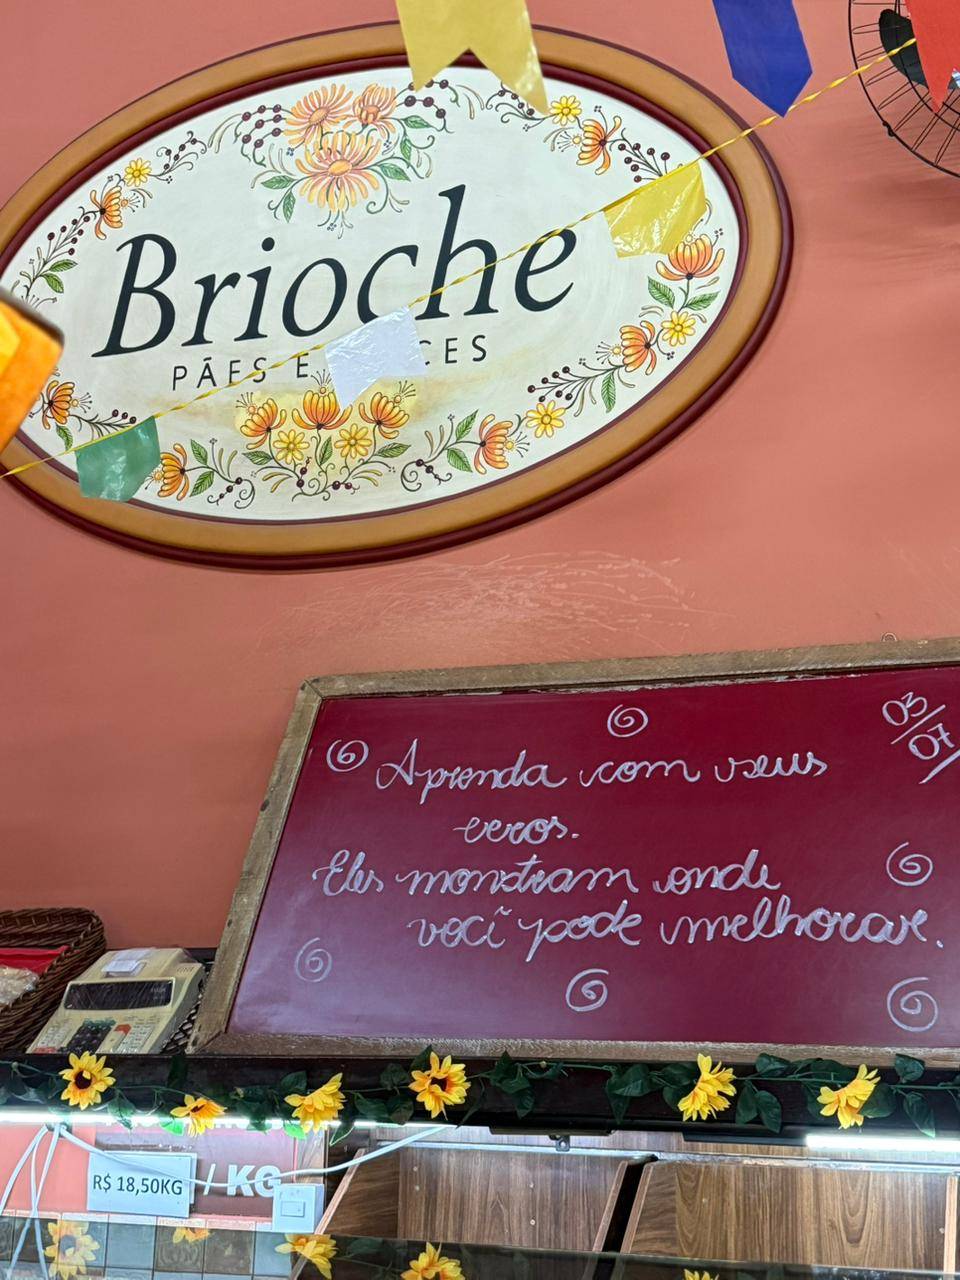 Brioche
PÃES E CES
03/07
Aprenda com seus
erros.
Eles monstram onde
você pode melhorar.
R$ 18,50KG
/ KG